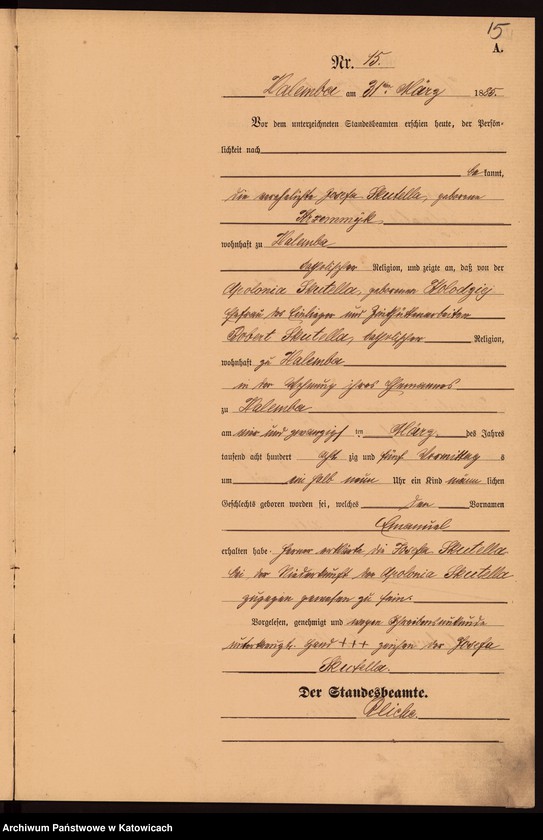 15
A.
Nr. 15.
Halemba am 31ten März 1885.
Vor dem unterzeichneten Standesbeamten erschien heute, der Persön-
lichkeit nach
be kannt,
die verehelichte Josefa Skutella, geborene
wohnhaft zu Halemba
katholischer Religion, und zeigte an, daß von der
Apolonia Skutella, geborenen Kolodziej
Ehefrau des Einlieger und Zinkhüttenarbeiters
Robert Skutella, katholischer Religion,
wohnhaft zu Halemba
in der Wohnung ihres Ehemannes
zu Halemba
am vier und zwanzigsten März des Jahres
tausend acht hundert acht zig und fünf Vormittags
um ein halb neun Uhr ein Kind männ lichen
Geschlechts geboren worden sei, welches den Vornamen
Emanuel
erhalten habe. Ferner erklärte die Josefa Skutella
bei der Niederkunft der Apolonia Skutella
zugegen gewesen zu sein.
Vorgelesen, genehmigt und wegen Schreibensunkunde
Hand +++ zeichen der Josefa
Skutella.
Der Standesbeamte.
Archiwum Państwowe w Katowicach